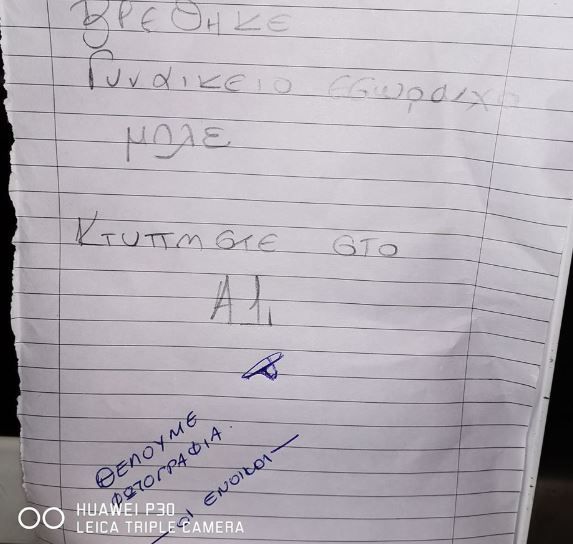 ΒΡΕΘΗΚΕ
Γυναικειο εσωρουχο
μπλε
ΚΤυπηστε στο
Α1.
ΘΕΛΟΥΜΕ
ΦΩΤΟΓΡΑΦΙΑ.
— ΟΙ ΕΝΟΙΚΟΙ —
HUAWEI P30
LEICA TRIPLE CAMERA